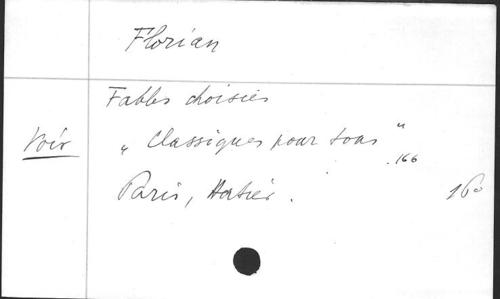 Florian
Fables choisies
Voir
" Classiques pour tous "
. 166
Paris, Hatier .
16°